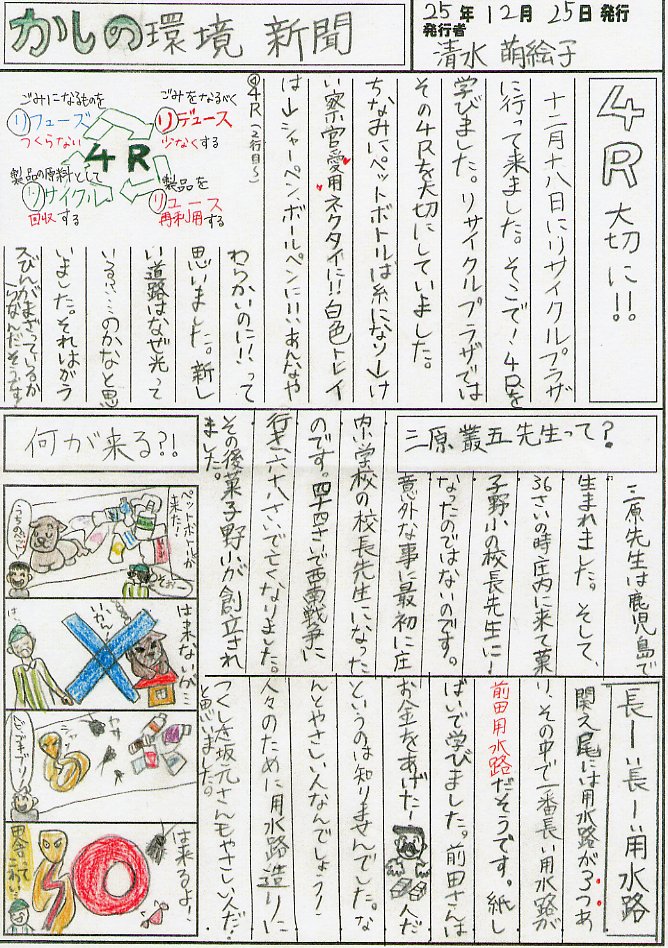 かしの環境新聞
25年12月25日発行
発行者
清水 萌絵子
4R大切に!!
十二月十八日にリサイクルプラザ
に行って来ました。そこで!4Rを
学びました。リサイクルプラザでは
その4Rを大切にしていました。
ちなみにペットボトルは糸になり→け
い察官愛用ネクタイに!!白色トレイ
は→シャーペン、ボールペンに!!あんなや
わらかいのに!!って
思いました。新し
い道路はなぜ光って
いる!?…のかなと思
いました。それはがう
スびんがまざっているか
らなんだそうです!
④4R(2行目〜)
ごみになるものを
リフューズ
つくらない
ごみをなるべく
リデュース
少なくする
4R
製品の原料として
リサイクル
回収する
製品を
リユース
再利用する
三原叢五先生って?
三原先生は鹿児島で
生まれました。そして、
36さいの時庄内に来て菓
子野小の校長先生に!
なったのではないのです。
意外な事に最初に庄
内小学校の校長先生になった
のです。四十四さいで西南戦争に
行き、六十八さいで亡くなりました。
その後菓子野小が創立され
ました。
何が来る?!
ペットボトルが
来た!
うちのペット
は来ないが…
は、
ガサ
ゴキブリ
は来るよ!
田舎って
こわい
長ーい長ーい用水路
関之尾には用水路が3つあ
り、その中で一番長い用水路が
前田用水路だそうです。紙し
ばいで学びました。前田さんは
お金をあげたー人だ
というのは知りませんでした。な
んとやさしい人なんでしょう!
人々のために用水路造りに
つくした坂元さんもやさしい人だ!
と思いました。